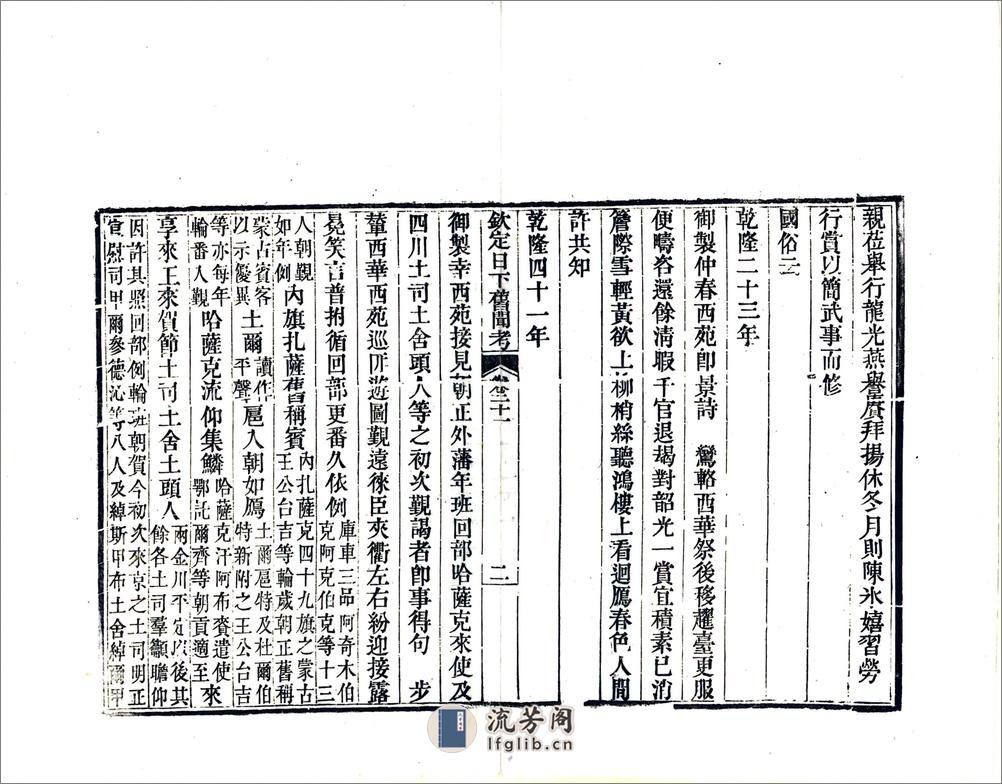 親莅舉行龍光燕譽賡拜揚休冬月則陳氷嬉習勞
行賞以簡武事而修
國俗云
乾隆二十三年
御製仲春西苑卽景詩　鸞輅西華祭後移趯臺更服
便疇咨還餘清暇千官退朅對韶光一賞宜積素已消
簷際雪輕黃欲上柳梢絲聽鴻樓上看迴鴈春色人間
許共知
乾隆四十一年
欽定日下舊聞考　卷二十一　二
御製幸西苑接見朝正外藩年班回部哈薩克來使及
四川土司土舍頭人等之初次覲謁者卽事得句　步
輦西華西苑巡𠕋遊圖覲遠徠臣夾衢左右紛迎接露
冕笑言普拊循回部更番久依例庫車三品阿奇木伯
克阿克伯克等十三
人朝覲
如年例內旗扎薩舊稱賓內扎薩克四十九旗之蒙古
王公台吉等輪歲朝正舊稱
蒙古賓客
以示優異土爾讀作
平聲扈入朝如鴈土爾扈特及杜爾伯
特新附之王公台吉
等亦每年
輪番入覲哈薩克流仰集鱗哈薩克汗阿布賚遣使
鄂託爾齊等朝貢適至來
享來王來賀節土司土舍土頭人兩金川平定以後其
餘各土司羣籲瞻仰
因許其照回部例輪班朝賀今初次來京之土司明正
宣慰司甲爾參德沁等八人及綽斯甲布土舍綽爾甲
流芳阁
lfglib.cn